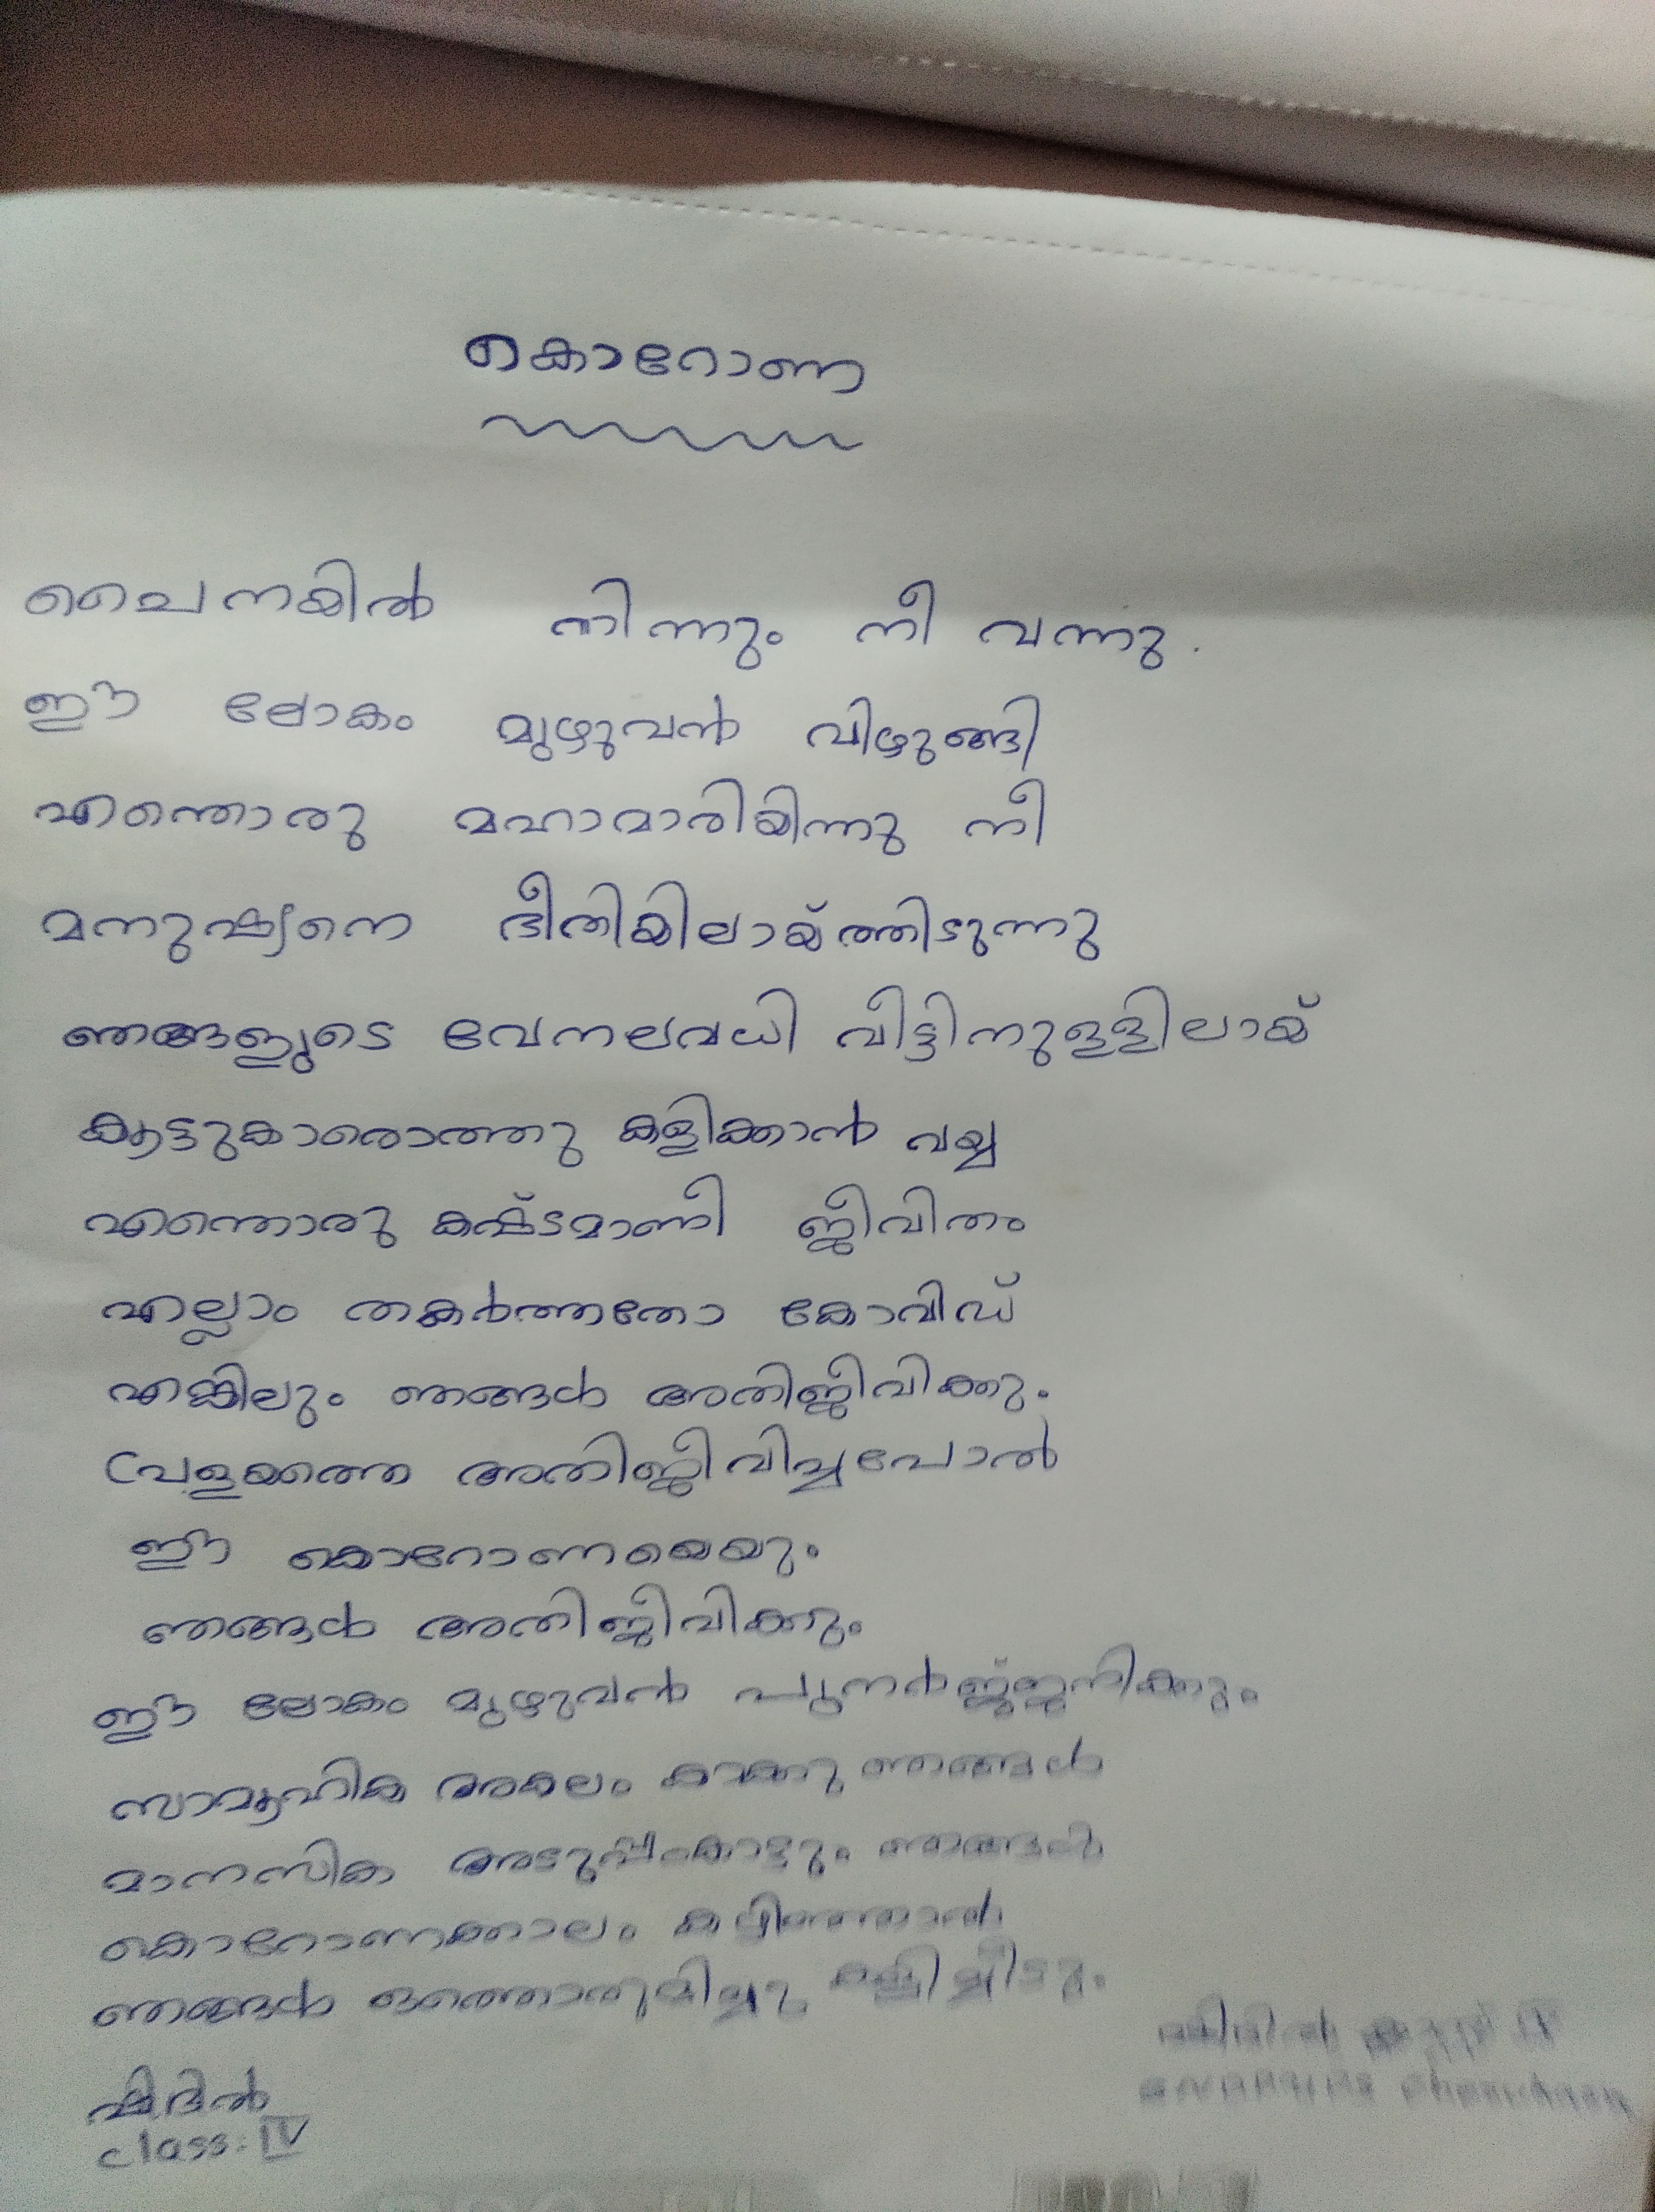 കൊറോണ
ചൈനയിൽ നിന്നും നീ വന്നു.
ഈ ലോകം മുഴുവൻ വിഴുങ്ങി
എന്തൊരു മഹാമാരിയിന്നു നീ
മനുഷ്യനെ ഭീതിയിലായ്ത്തിടുന്നു
ഞങ്ങളുടെ വേനലവധി വീട്ടിനുള്ളിലായ്
കൂട്ടുകാരൊത്തു കളിക്കാൻ വയ്യ
എന്തൊരു കഷ്ടമാണീ ജീവിതം
എല്ലാം തകർത്തതോ കോവിഡ്
എങ്കിലും ഞങ്ങൾ അതിജീവിക്കു.
പ്രളയത്തെ അതിജീവിച്ചപോൽ
ഈ കൊറോണയെയും
ഞങ്ങൾ അതിജീവിക്കും
ഈ ലോകം മുഴുവൻ പുനർജ്ജനിക്കും
സാമൂഹിക അകലം കാക്കു ഞങ്ങൾ
മാനസിക അടുപ്പംകാട്ടും ഞങ്ങൾ
കൊറോണക്കാലം കഴിഞ്ഞാൽ
ഞങ്ങൾ ഒത്തൊരുമിച്ചു കളിച്ചീടും.
ഷിദിൽ
class: IV